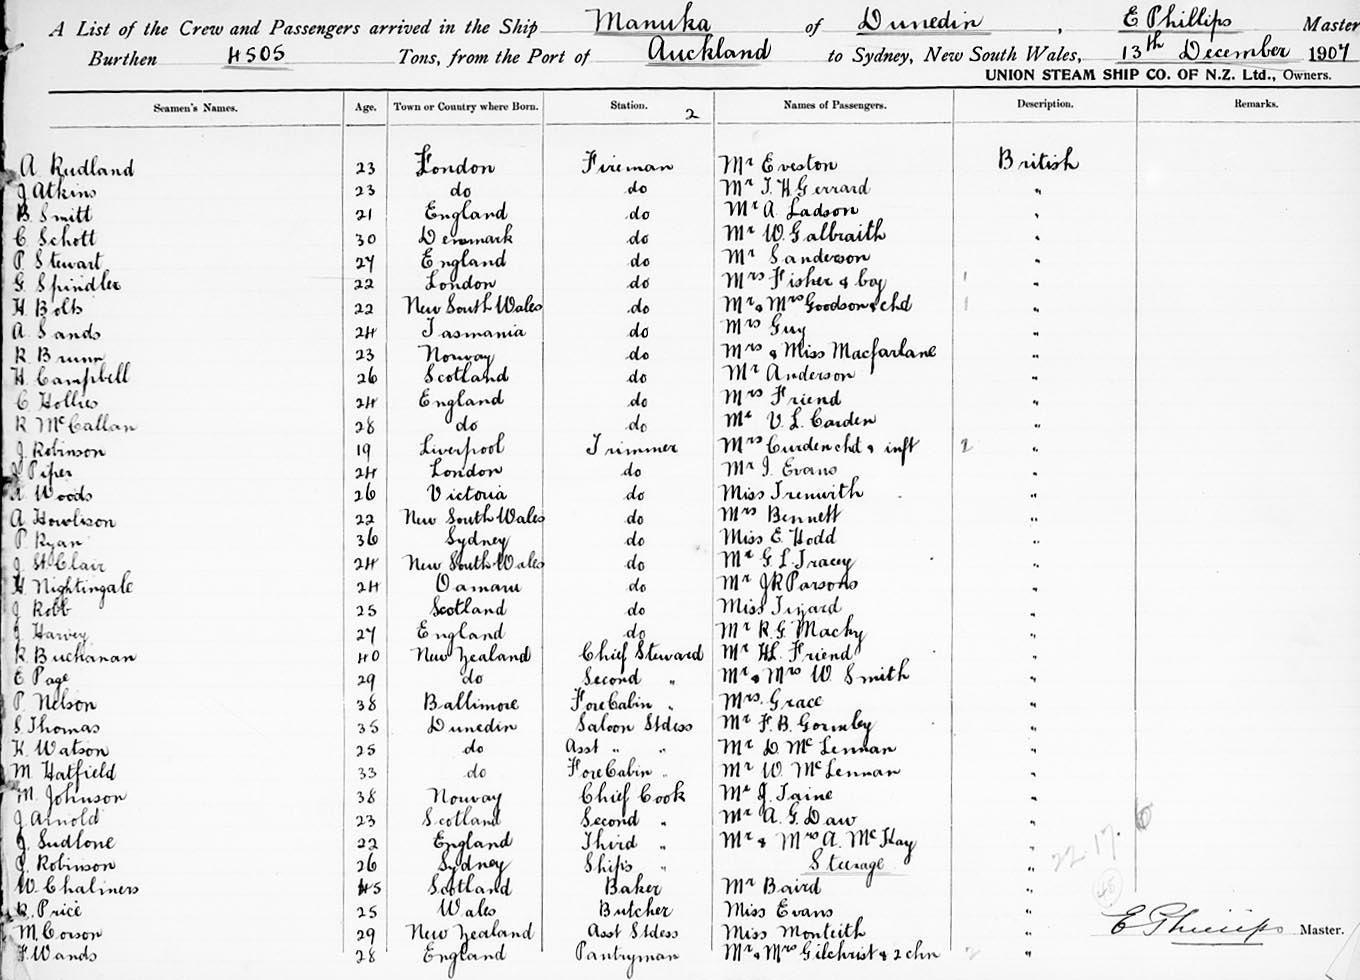 A List of the Crew and Passengers arrived in the Ship Manuka of Dunedin, E Phillips Master
Burthen 4505 Tons, from the Port of Auckland to Sydney, New South Wales, 13th December 1907
UNION STEAM SHIP CO. OF N.Z. Ltd., Owners.
Seamen's Names. Age. Town or Country where Born. Station. 2 Names of Passengers. Description. Remarks.
A Rudland 23 London Fireman Mr Eveston British
J Atkins 23 do do Mr T. H Gerrard "
B. Smitt 21 England do Mr A. Ladson "
C Schott 30 Denmark do Mr W. Galbraith "
P Stewart 27 England do Mr Sanderson "
G. Spindler 22 London do Mrs Fisher & boy 1 "
H. Bolts 22 New South Wales do Mr & Mrs Goodson & chd 1 "
A. Sands 24 Tasmania do Mrs Guy "
R Brunn 23 Norway do Mrs & Miss Macfarlane "
H. Campbell 26 Scotland do Mr Anderson "
C Hollies 24 England do Mrs Friend "
R McCallan 28 do do Mr V. L. Carden "
J. Robinson 19 Liverpool Trimmer Mrs Curden chd & inft 2 "
Piper 24 London do Mr J. Evans "
Woods 26 Victoria do Miss Trenwith "
A Howlison 22 New South Wales do Mrs Bennett "
P. Ryan 36 Sydney do Miss E. Hodd "
J. St Clair 24 New South Wales do Mr G. L. Tracey "
H. Nightingale 24 Oamaru do Mr JR Parsons "
J Robb 25 Scotland do Miss Tizard "
J Harvey 27 England do Mr R. G. Macky "
R. Buchanan 40 New Zealand Chief Steward Mr HL. Friend "
E Page 29 do Second " Mr & Mrs W. Smith "
P. Nelson 38 Baltimore Fore Cabin " Mrs. Grace "
S. Thomas 35 Dunedin Saloon Stdess Mr F. B. Gormley "
K Watson 25 do Asst " " Mr D. McLennan "
M Hatfield 33 do Fore Cabin " Mr W. McLennan "
M. Johnson 38 Norway Chief Cook Mr J. Taine "
J Arnold 23 Scotland Second " Mr A. G. Daw "
J. Sudlone 22 England Third " Mr & Mrs A. McKay "
J. Robinson 26 Sydney Ships " Steerage "
22 17. 6
W. Chalmers 45 Scotland Baker Mr Baird "
R. Price 25 Wales Butcher Miss Evans "
M. Corson 29 New Zealand Asst Stdess Miss Monteith " E Phillips Master.
F. Wands 28 England Pantryman Mr & Mrs Gilchrist & 2 chn 2 "